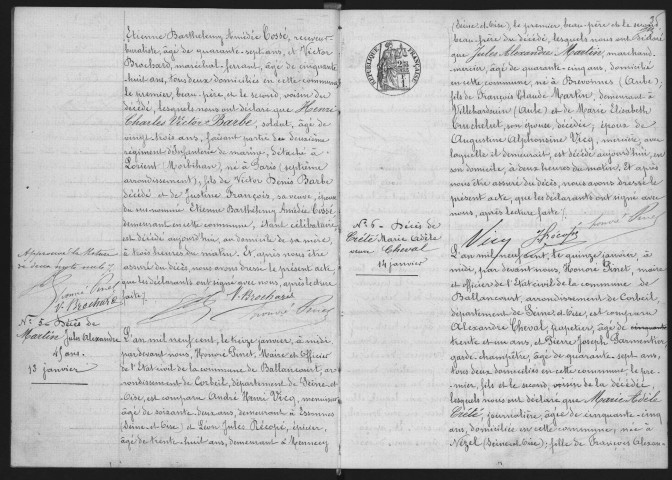 Étienne Barthélemy Amédée Cossé, receveur
buraliste, âgé de quarante-sept ans, et Victor
Brochard, maréchal-ferrant, âgé de cinquante
huit ans, tous deux domiciliés en cette commune
le premier, beau-père, et le second, voisin du
décédé, lesquels nous ont déclaré que Henri
Charles Victor Barbe, soldat, âgé de
vingt trois ans, faisant partie du deuxième
régiment d'Infanterie de marine, détaché à
Lorient (Morbihan), né à Paris (septième
arrondissement), fils de Victor Denis Barbe
décédé et de Justine François, sa veuve, épouse
du susnommé Étienne Barthélemy Amédée Cossé
demeurant en cette commune, étant célibataire,
est décédé aujourd'hui, au domicile de sa mère,
à trois heures du matin. Et, après nous être
assuré du décès, nous avons dressé le présent acte,
que les déclarants ont signé avec nous, après lecture
faite.
Approuvé
honoré Pinet
V. Brochard
V. Brochard
honoré Pinet
N° 5 Décès de
Martin Jules Alexandre
45 ans.
13 janvier
L'an mil neuf cent, le treize janvier, à midi
par devant nous, Honoré Pinet, Maire et Officier
de l'État civil de la commune de Ballancourt, ar-
rondissement de Corbeil, département de Seine-et
Oise, est comparu André Henri Vicq, menuisier
âgé de soixante-deux ans, demeurant à Essonnes
(Seine-et-Oise) et Léon Jules Récopé, épicier,
âgé de trente-huit ans, demeurant à Mennecy
(Seine-et-Oise), le premier, beau-père et le second
beau-père du décédé, lesquels nous ont déclaré
que Jules Alexandre Martin, marchand
mercier, âgé de quarante-cinq ans, domicilié
en cette commune, né à Brevonnes (Aube),
fils de François Claude Martin, demeurant à
Villehardouin (Aube) et de Marie Elisabeth
Cruchelut, son épouse, décédée; époux de
Augustine Alphonsine Vicq, mercière, avec
laquelle il demeurait, est décédé aujourd'hui, en
son domicile, à deux heures du matin. Et après
nous être assuré du décès, nous avons dressé le
présent acte, que les déclarants ont signé avec
nous, après lecture faite.
Vicq
JRécopé
honoré Pinet
RÉPUBLIQUE FRANÇAISE
N° 6 Décès de
Crété Marie Adèle
veuve Cheval
14 janvier
L'an mil neuf cent, le quinze janvier, à
midi, par devant nous, Honoré Pinet, maire
et Officier de l'État civil de la commune de
Ballancourt, arrondissement de Corbeil
département de Seine-et-Oise, est comparu
Alexandre Cheval, papetier, âgé de cinquante
trente et un ans, et Pierre Joseph Parmentier,
garde-champêtre, âgé de quarante-sept ans,
tous deux domiciliés en cette commune, le pre-
mier, fils et le second, voisin de la décédée,
lesquels nous ont déclaré que Marie Adèle
Crété, journalière, âgée de cinquante-cinq
ans, domiciliée en cette commune, née à
Nézel (Seine-et-Oise); fille de François Alexan-